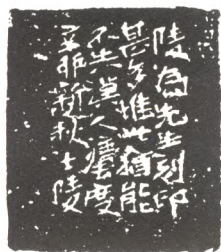 陵為先生刻印
甚多惟此猶能
不失漢人灋度
辛卯新秋士陵